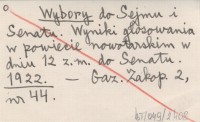 Wybory do Sejmu i
Senatu. Wyniki głosowania
w powiecie nowotarskim w
dniu 12 z.m. do Senatu.
1922. — Gaz. Zakop 2,
nr 44.